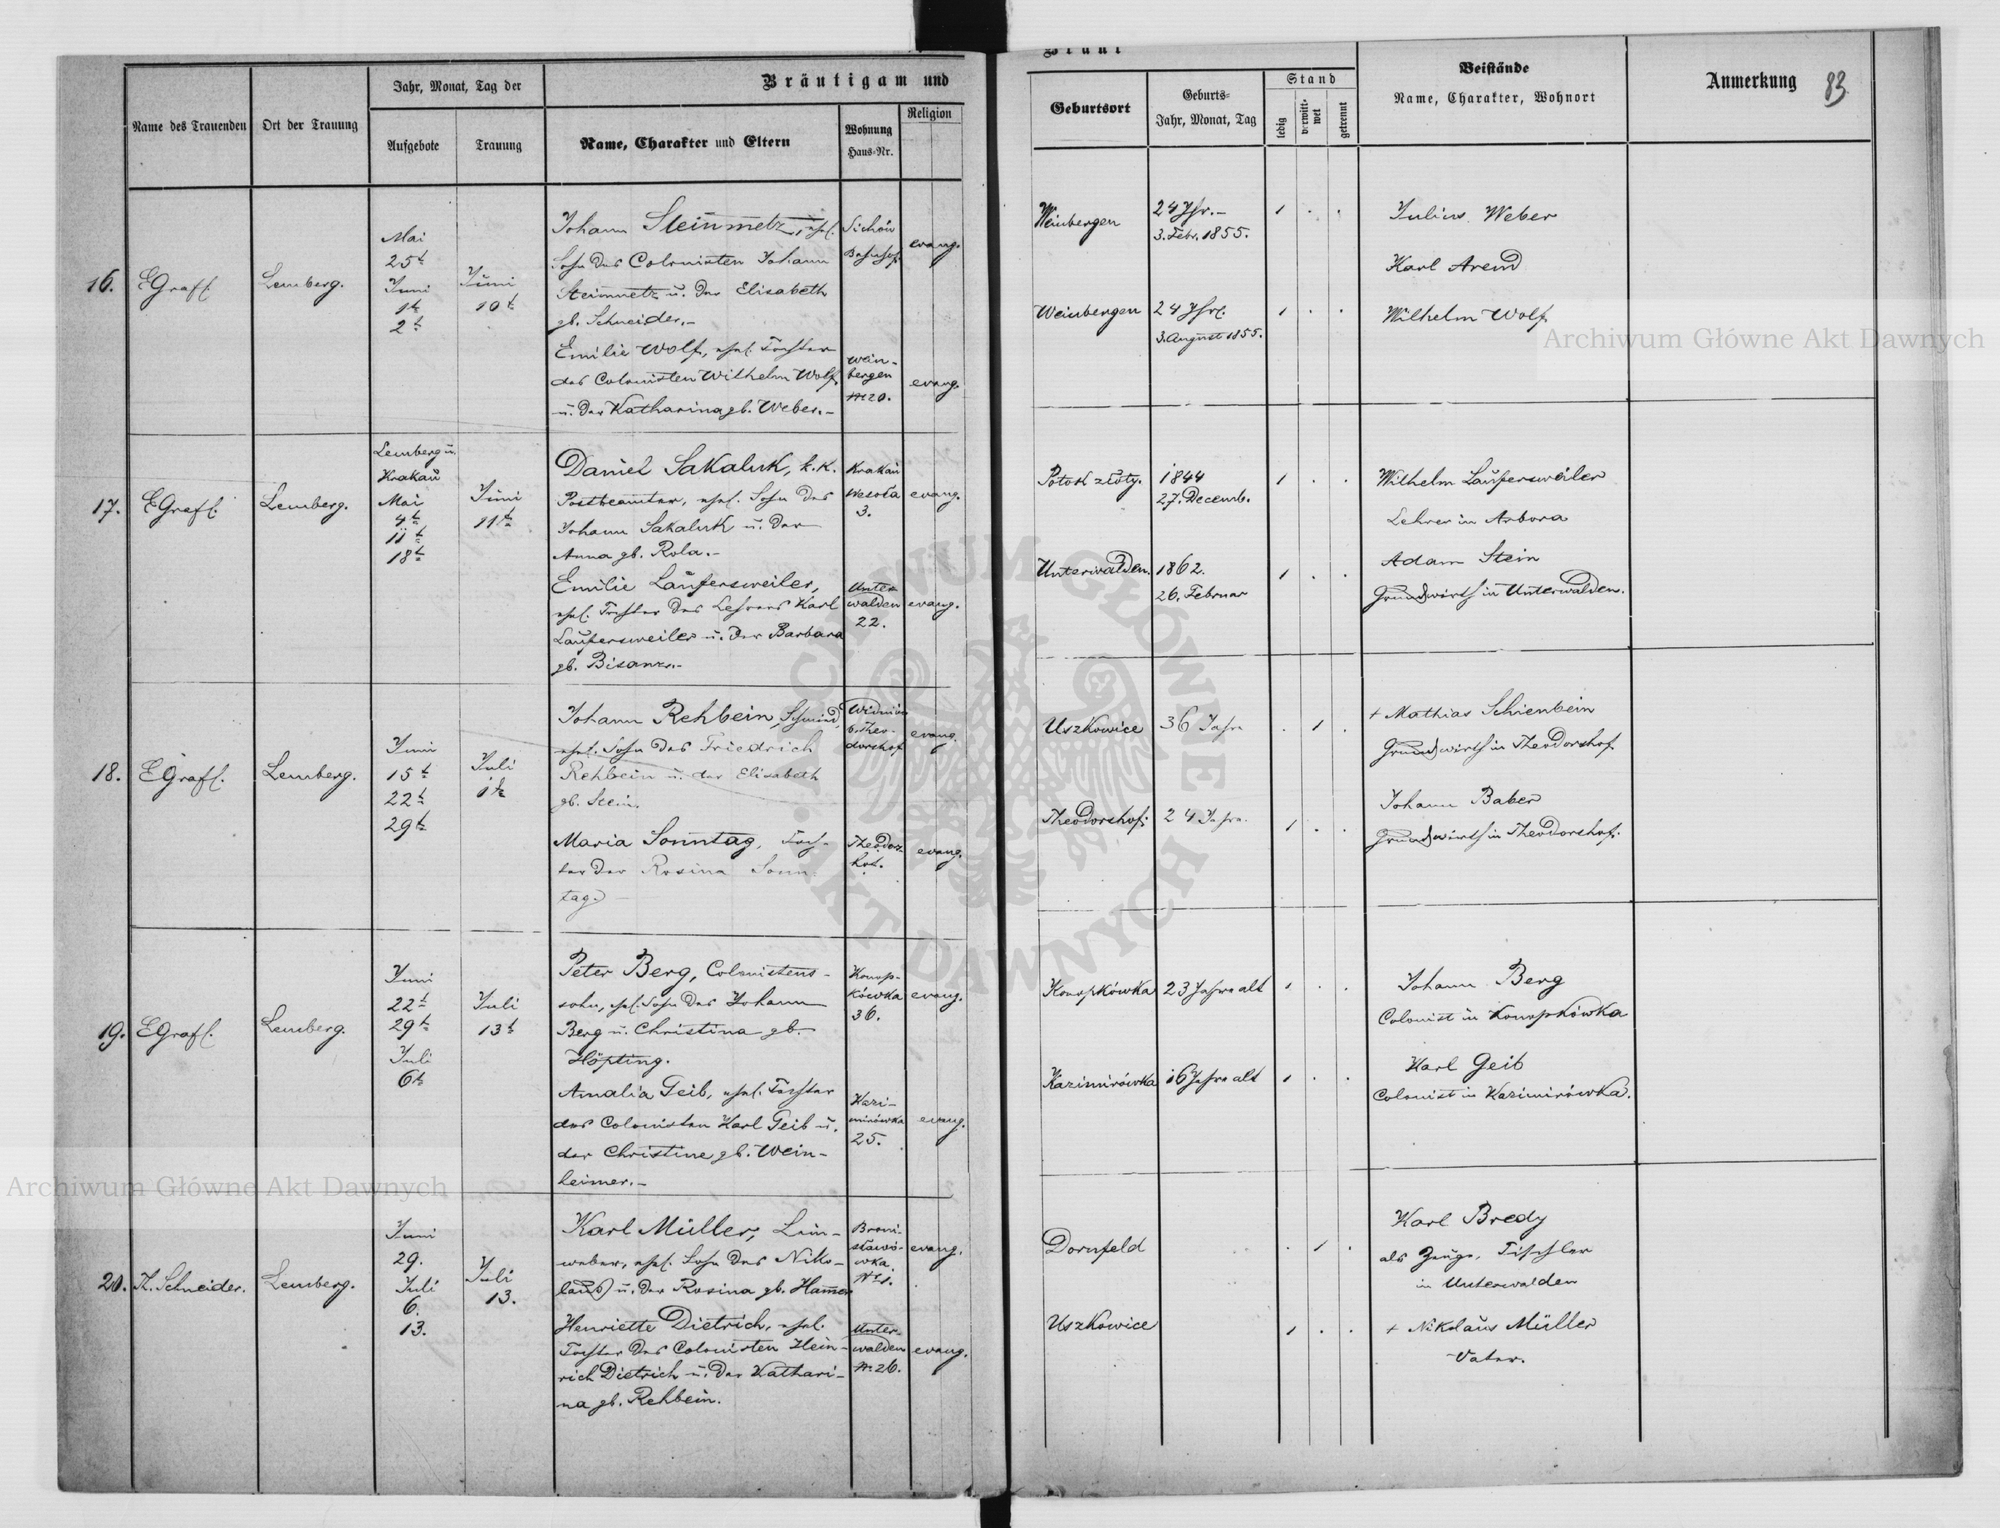 Bräutigam und
Braut
Name des Trauenden
Ort der Trauung
Jahr, Monat, Tag der
Aufgebote
Trauung
Name, Charakter und Eltern
Wohnung
Haus-Nr.
Religion
Geburtsort
Geburts-
Jahr, Monat, Tag
Stand
ledig
verwitt-
wet
getrennt
Beistände
Name, Charakter, Wohnort
Anmerkung
83
16.
EGraff.
Lemberg.
Mai
25t
Juni
1t
2t
Juni
10t
Johann Steinmetz, ehel.
Sohn des Colonisten Johann
Steinmetz u. der Elisabeth
gb. Schneider.-
Emilie Wolf, ehel. Tochter
des Colonisten Wilhelm Wolf
u. der Katharina gb. Weber.-
Sichów
Bahnhof
Wein-
bergen
№20.
evang.
evang.
Weinbergen
24 Jhr.-
3. Febr. 1855.
Weinbergen
24 Jhr.
3. August 1855.
Julius Weber
Karl Arend
Wilhelm Wolf
17.
EGraff.
Lemberg.
Lemberg u.
Krakau
Mai
4t
11t
18t
Juni
11t
Daniel Sakaluk, k.k.
Postbeamter, ehel. Sohn des
Johann Sakaluk u. der
Anna gb. Rola.-
Emilie Laufersweiler,
ehel. Tochter des Lehrers Karl
Laufersweiler u. der Barbara
gb. Bisanz.-
Krakau
Wesoła
3.
Unter-
walden
22.
evang.
evang.
Potok złoty.
1844
27. Decemb.
Unterwalden.
1862.
26. Februar
Wilhelm Laufersweiler
Lehrer in Arbora
Adam Stein
Grundwirth in Unterwalden.
18.
EGraff.
Lemberg.
Juni
15t
22t
29t
Juli
1t
Johann Rehbein, Schmied,
ehel. Sohn des Friedrich
Rehbein u. der Elisabeth
gb. Stein.
Maria Sonntag, Toch-
ter der Rosina Sonn-
tag.-
b. Theo-
dorshof
Theodors-
hof.
evang.
evang.
Uszkowice
36 Jahre
Theodorshof.
24 Jahre.
+ Mathias Schienbein
Grundwirth in Theodorshof
Johann Baber
Grundwirth in Theodorshof.
19.
EGraff.
Lemberg.
Juni
22t
29t
Juli
6t
Juli
13t
Peter Berg, Colonistens-
sohn, ehel. Sohn des Johann
Berg u. Christina gb.
Höpting.
Amalia Geib, ehel. Tochter
des Colonisten Karl Geib u.
der Christine gb. Wein-
heimer.-
Konop-
kówka
36.
Kazi-
mirówka
25.
evang.
evang.
Konopkówka
23 Jahre alt
Kazimirówka
16 Jahre alt
Johann Berg
Colonist in Konopkówka
Karl Geib
Colonist in Kazimirówka.
20.
K. Schneider.
Lemberg.
Juni
29.
Juli
6.
13.
Juli
13.
Karl Müller, Lein-
weber, ehel. Sohn des Niko-
laus u. der Rosina gb. Hamer
Henriette Dietrich, ehel.
Tochter des Colonisten Hein-
rich Dietrich u. der Kathari-
na gb. Rehbein.
Broni-
sławó-
wka.
№1.
Unter-
walden
№26.
evang.
evang.
Dornfeld
Uszkowice
Karl Bredy
als Zeuge, Tischler
in Unterwalden
+ Nikolaus Müller
Vater.
Archiwum Główne Akt Dawnych
Archiwum Główne Akt Dawnych
ARCHIWUM GŁÓWNE AKT DAWNYCH